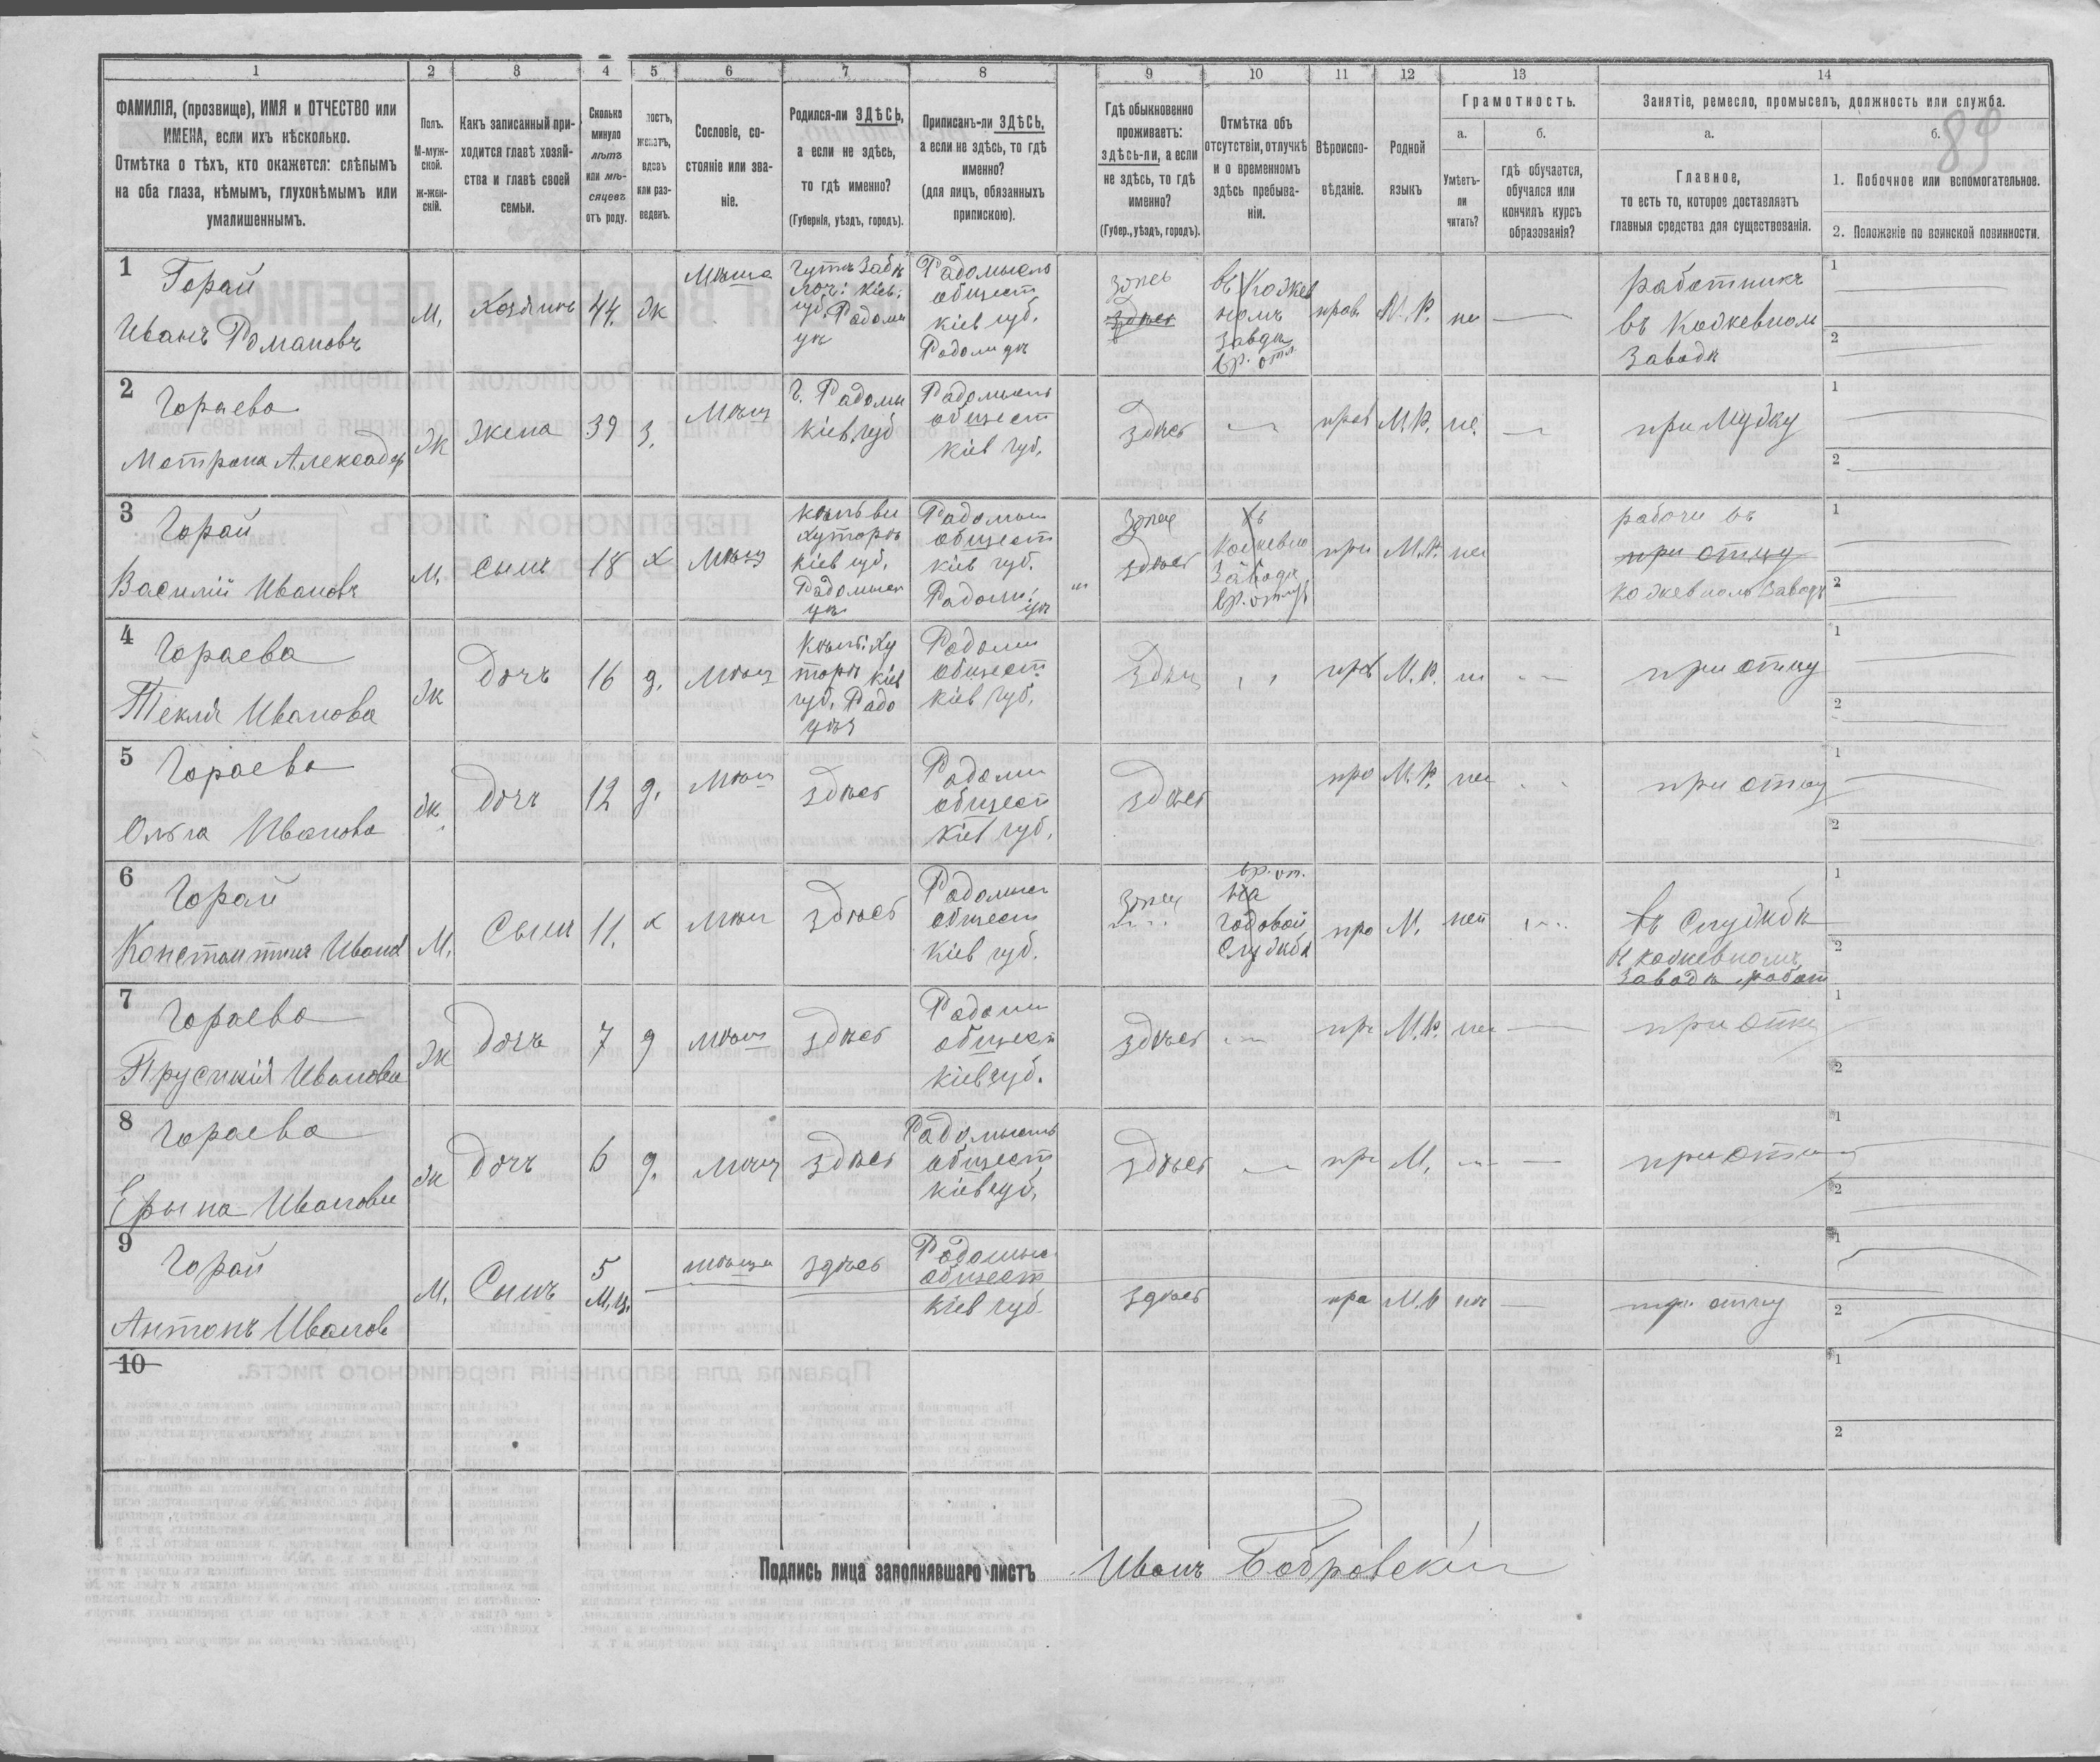 1 2 3 4 5 6 7 8 9 10 11 12 13 14
ФАМИЛІЯ, (прозвище), ИМЯ и ОТЧЕСТВО или
ИМЕНА, если ихъ нѣсколько.
Отмѣтка о тѣхъ, кто окажется: слѣпымъ
на оба глаза, нѣмымъ, глухонѣмымъ или
умалишеннымъ.
Полъ.
М-муж-
ской.
ж-жен-
скій.
Какъ записанный при-
ходится главѣ хозяй-
ства и главѣ своей
семьи.
Сколько
минуло
лѣтъ
или мѣ-
сяцевъ
отъ роду.
женатъ,
вдовъ
или раз-
веденъ.
Сословіе, со-
стояніе или зва-
ніе.
Родился-ли ЗДѢСЬ,
а если не здѣсь,
то гдѣ именно?
(Губернія, уѣздъ, городъ).
Приписанъ-ли ЗДѢСЬ,
а если не здѣсь, то гдѣ
именно?
(для лицъ, обязанныхъ
припискою).
Гдѣ обыкновенно
проживаетъ:
здѣсь-ли, а если
не здѣсь, то гдѣ
именно?
(Губер., уѣздъ, городъ).
Отмѣтка объ
отсутствіи, отлучкѣ
и о временномъ
здѣсь пребыва-
ніи.
Вѣроиспо-
вѣданіе.
Родной
языкъ
Грамотность.
а.
Умѣетъ-
ли
читать?
б.
гдѣ обучается,
обучался или
кончилъ курсъ
образованія?
Занятіе, ремесло, промыселъ, должность или служба.
а.
Главное,
то есть то, которое доставляетъ
главныя средства для существованія.
б.
89
1. Побочное или вспомогательное.
2. Положеніе по воинской повинности.
1
Горай
Иванъ Романовъ
М.
Хозяинъ
44.
Ж
губ. Радомы
Радомысль
общест
кіев губ.
здѣсь
въ Кожев
номъ
заводѣ
вр. отл.
прав.
М. Р.
не
работникъ
въ Кожевном
заводѣ
1
2
2
Гораева
Мотрона Александр
Ж
Жена
39
З.
Мѣщ
г. Радомы
кіев. губ
Радомысль
общест
кіев губ.
здѣсь
прав
М.Р.
не.
при мужу
1
2
3
Горай
Василій Ивановъ
М.
Сынъ
18
Х
Мѣщ
хуторъ
кіев губ.
Радомысл
Радомы
общест
кіев губ.
здѣсь
въ
Кожевно
заводѣ
при
М.Р.
не
рабочи въ
при отцу
кожевном заводѣ
1
2
4
Гораева
Текля Иванова
Ж
Дочь
16
д.
Мѣщ
губ. Радо
Радомы
общест
кіев губ.
прав
М.Р.
при отцу
1
2
5
Гораева
Ольга Иванова
Ж.
Дочь
12
д.
Мѣщ
здѣсь
Радомы
общест
кіев губ.
здѣсь
про
М.Р.
не
при отцу
1
2
6
Горай
Константинъ Иванов
М.
Сынъ
11.
х
Мѣщ
здѣсь
Радомысл
общест
кіев губ.
вр. от.
на
годовой
службѣ
про
М.
нет
въ службѣ
в кожевномъ
заводѣ работ
1
2
7
Гораева
Ивановa
Ж
Дочь
7
д
Мѣщ
здѣсь
Радомы
общест
кіев губ.
здѣсь
пр
М.Р.
не
при отцу
1
2
8
Гораева
Ерына Ивановa
Ж
Дочь
6
д.
Мѣщ
здѣсь
Радомысль
общест
кіев губ.
здѣсь
пр
М.
при отцу
1
2
9
Горай
Антонъ Иванов
М.
Сынъ
5
М.ц.
здѣсь
общест
кіев губ.
здѣсь
пра
М.Р
при отцу
1
2
10
1
2
Подпись лица заполнявшаго листъ Иванъ Бобровскій